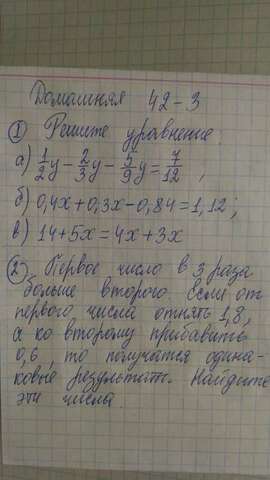 Домашняя 42-3
① Решите уравнение
а) 1/2 y - 2/3 y - 5/9 y = 7/12 ,
б) 0,4x + 0,3x - 0,84 = 1,12;
в) 14 + 5x = 4x + 3x
② Первое число в 3 раза
больше второго. Если от
первого числа отнять 1,8,
а ко второму прибавить
0,6, то получатся одина-
ковые результаты. Найдите
эти числа.